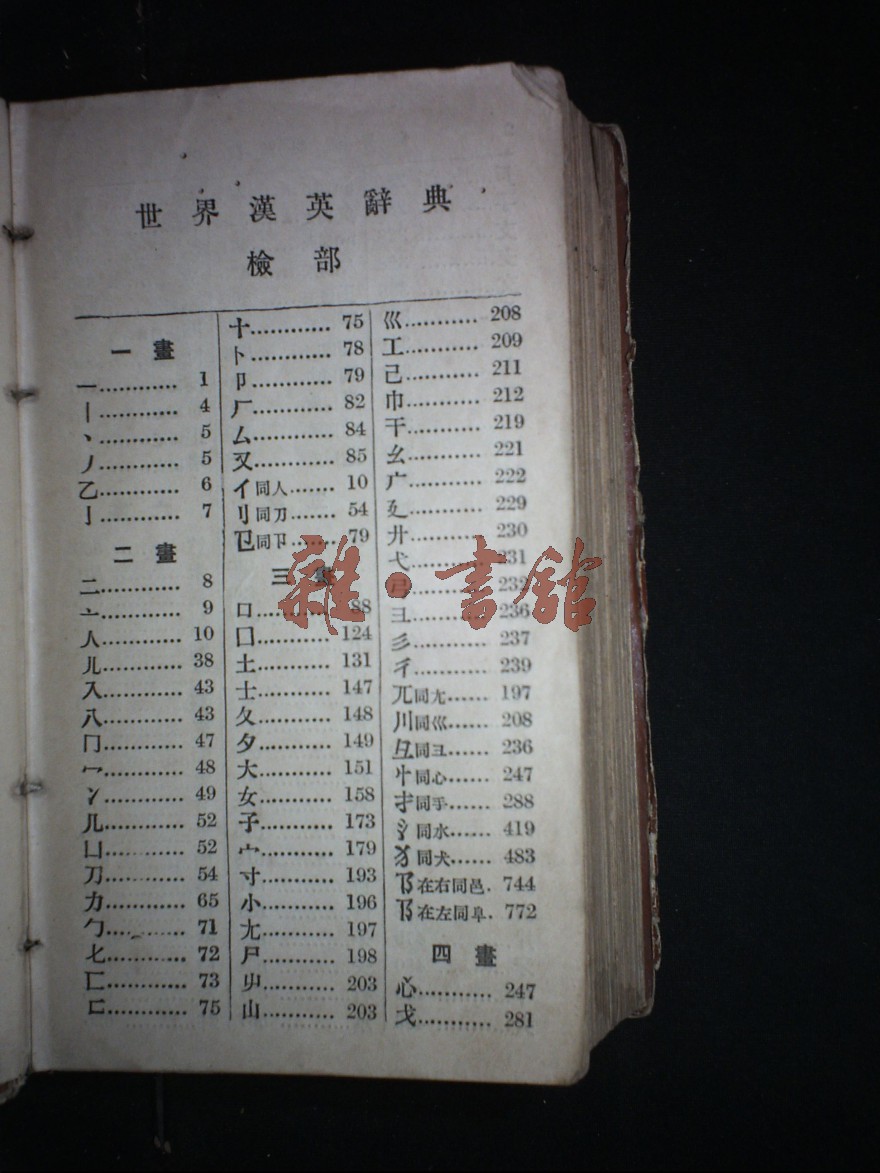 世界漢英辭典
檢部
一畫
一............ 1
丨............ 4
丶............ 5
丿............ 5
乙............ 6
亅............ 7
二畫
二............ 8
亠............ 9
人............ 10
儿............ 38
入............ 43
八............ 43
冂............ 47
冖............ 48
冫............ 49
几............ 52
凵............ 52
刀............ 54
力............ 65
勹............ 71
匕............ 72
匚............ 73
匸............ 75
十............ 75
卜............ 78
卩............ 79
厂............ 82
厶............ 84
又............ 85
亻同人....... 10
刂同刀....... 54
㔾同卩....... 79
三畫
口............ 88
囗............ 124
土............ 131
士............ 147
夂............ 148
夕............ 149
大............ 151
女............ 158
子............ 173
宀............ 179
寸............ 193
小............ 196
尢............ 197
尸............ 198
屮............ 203
山............ 203
巛........... 208
工........... 209
己........... 211
巾........... 212
干........... 219
幺........... 221
广........... 222
廴........... 229
廾........... 230
弋........... 231
弓........... 232
彐........... 236
彡........... 237
彳........... 239
兀同尢...... 197
川同巛...... 208
彑同彐...... 236
忄同心...... 247
扌同手...... 288
氵同水...... 419
犭同犬...... 483
阝在右同邑. 744
阝在左同阜. 772
四畫
心........... 247
戈........... 281
雜·書館